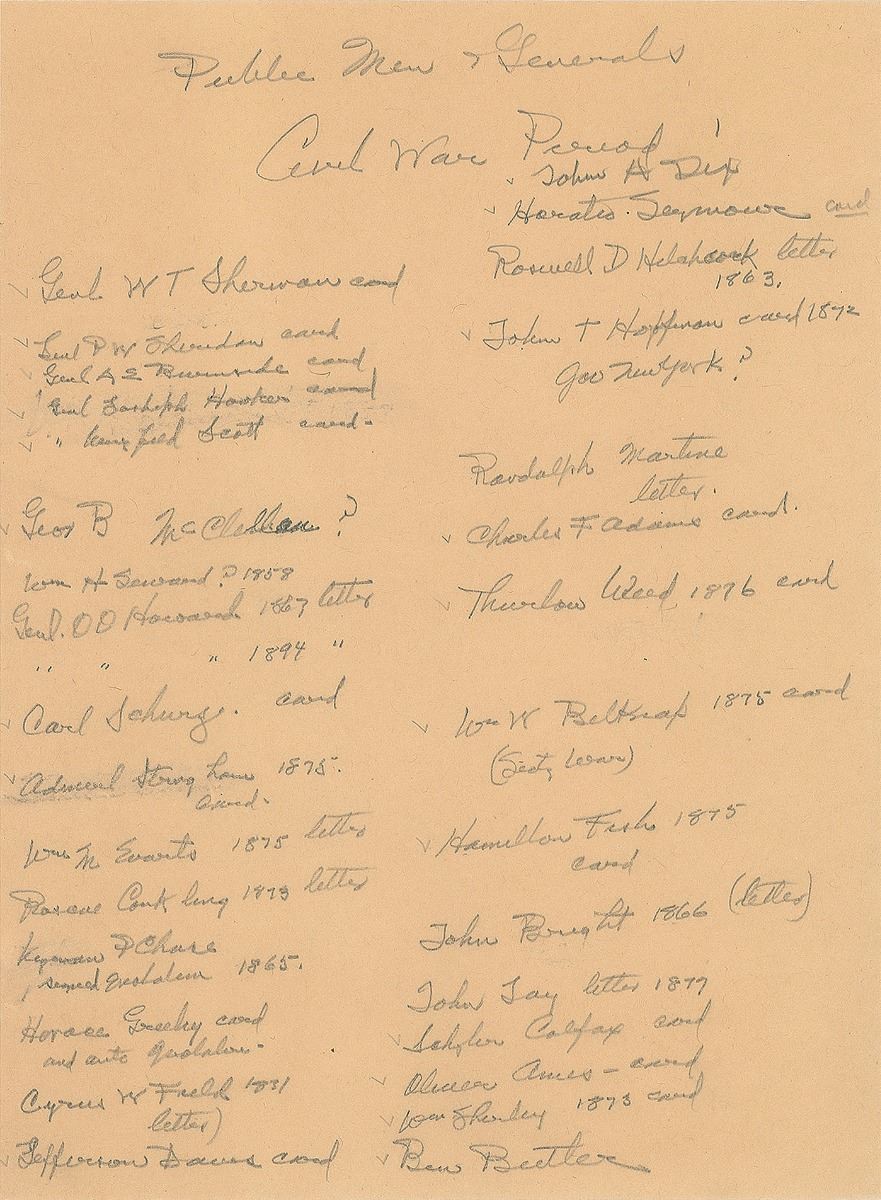 Public Men & Generals
Civil War Period
John A Dix
Horatio Seymour card
Roswell D Hitchcock letter
1863.
John T Hoffman card 1872
Gov New York ?
Randolph Martine
letter.
Charles F Adams card.
Thurlow Weed 1876 card
Wm W Belknap 1875 card
(Secty War)
Hamilton Fish 1875
card
John Bright 1866 (letter)
John Jay letter 1877
Schyler Colfax card
Oliver Ames - card
Wm 1873 card
Ben Butler
Genl W T Sherman card
Genl P W Sheridan card
Genl A E Burnside card
Genl Joseph Hooker card
" Scott card -
Geo B McClellan ?
Wm H Seward ? 1858
Genl. O O Howard 1867 letter
" " " 1894 "
Carl Schurz. card
Admiral 1875.
card.
Wm M Evarts 1875 letter
Roscoe Conkling 1873 letter
P Chase
1865.
Horace Greeley card
and auto
Cyrus W Field 1831
letter)
Jefferson Davis card